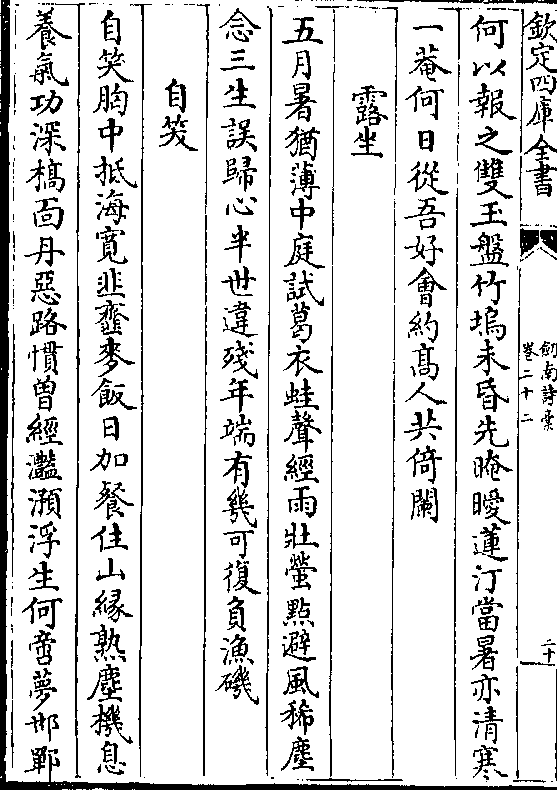 欽定四庫全書
劍南詩稾
卷二十二
二十
何以報之雙玉盤竹塢未昏先晻曖蓮汀當暑亦清寒
一菴何日從吾好會約髙人共倚闌
露坐
五月暑猶薄中庭試葛衣蛙聲經雨壯螢㸃避風稀塵
念三生誤歸心半世違殘年端有幾可復負漁磯
自笑
自笑胸中抵海寛韭虀麥飯日加餐住山緣熟塵機息
養氣功深槁面丹惡路慣曾經灔澦浮生何啻夢邯鄲